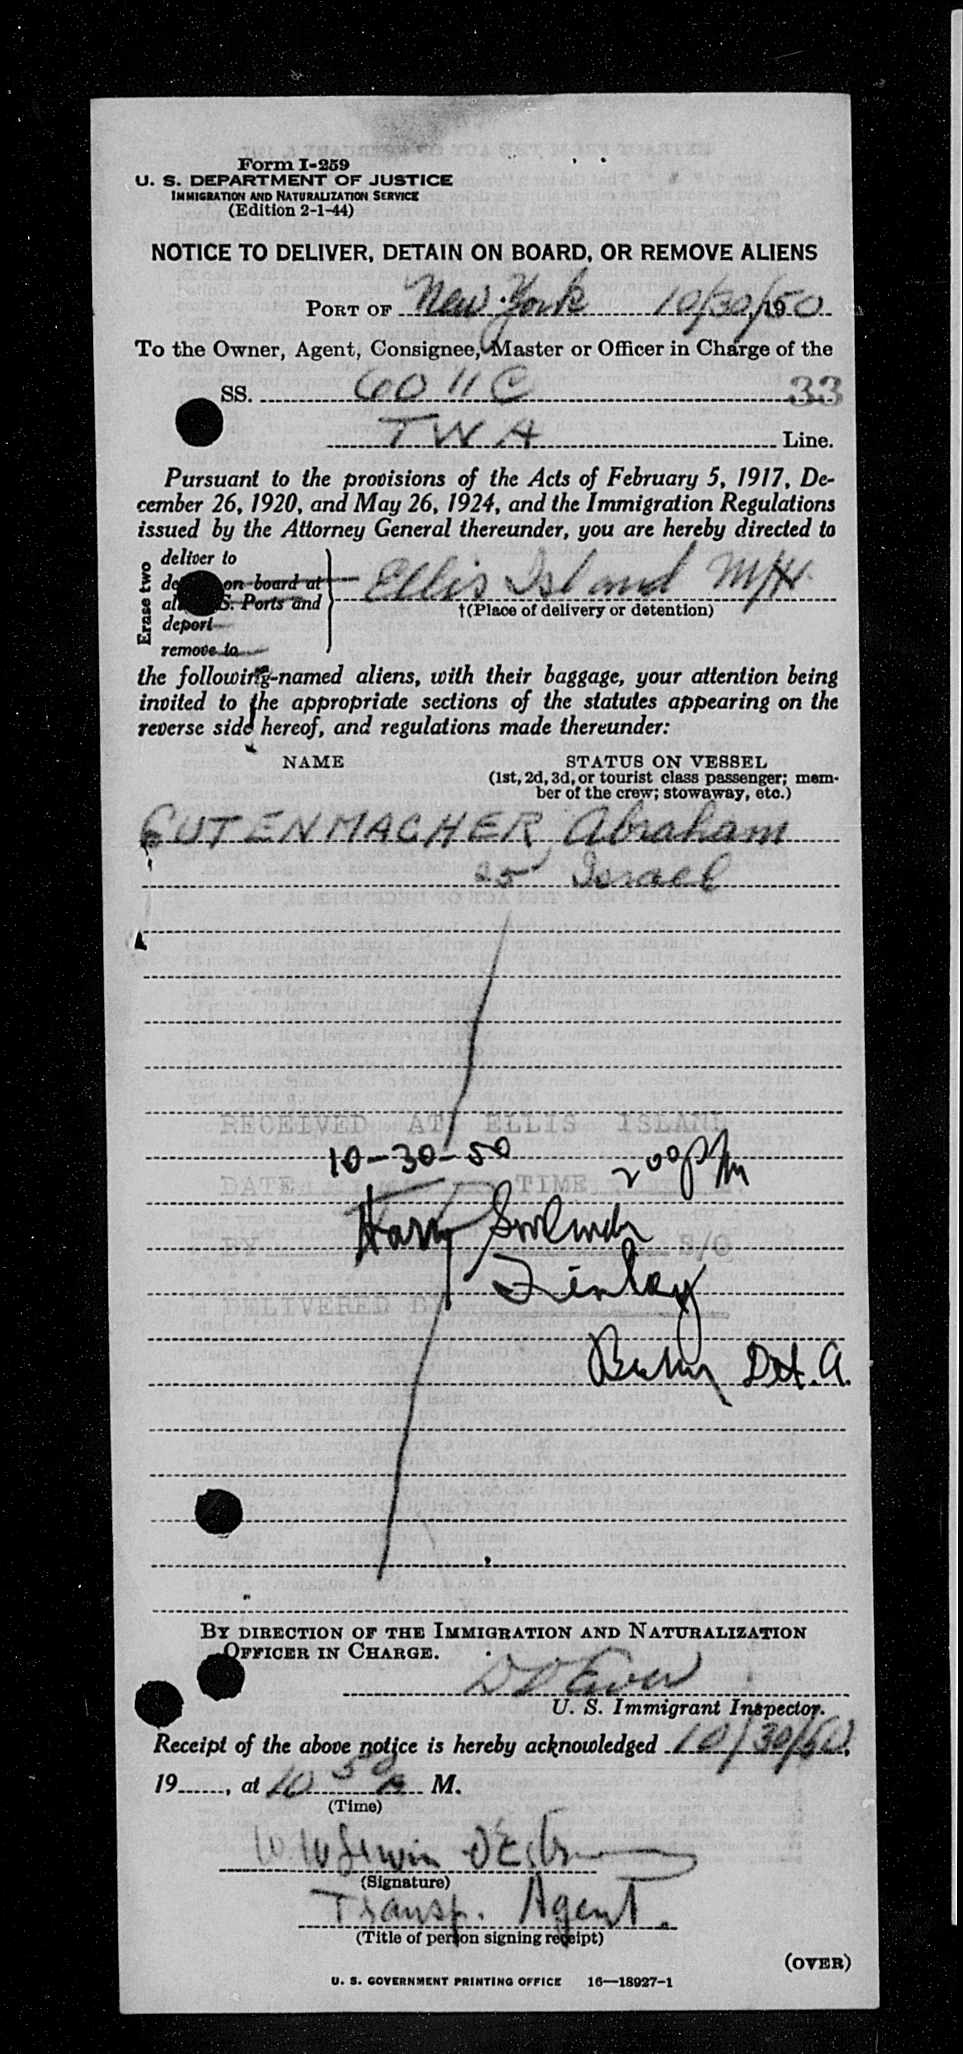 Form I-259
U. S. DEPARTMENT OF JUSTICE
IMMIGRATION AND NATURALIZATION SERVICE
(Edition 2-1-44)
NOTICE TO DELIVER, DETAIN ON BOARD, OR REMOVE ALIENS
PORT OF New York 10/30/, 1950
To the Owner, Agent, Consignee, Master or Officer in Charge of the
SS. 6011C 33
TWA Line.
Pursuant to the provisions of the Acts of February 5, 1917, De-
cember 26, 1920, and May 26, 1924, and the Immigration Regulations
issued by the Attorney General thereunder, you are hereby directed to
Erase two
deliver to
on board at
S. Ports and
deport
remove to
Ellis Island M/H
†(Place of delivery or detention)
the following-named aliens, with their baggage, your attention being
invited to the appropriate sections of the statutes appearing on the
reverse side hereof, and regulations made thereunder:
NAME STATUS ON VESSEL
(1st, 2d, 3d, or tourist class passenger; mem-
ber of the crew; stowaway, etc.)
GUTENMACHER Abraham
25 Israel
RECEIVED AT ELLIS ISLAND
10-30-50 200 PM
DATE TIME
Harry
BY S/O
Finley
DELIVERED B
Det. A.
BY DIRECTION OF THE IMMIGRATION AND NATURALIZATION
OFFICER IN CHARGE.
U. S. Immigrant Inspector.
Receipt of the above notice is hereby acknowledged 10/30/50,
19......, at 10 50 A M.
(Time)
(Signature)
Transp. Agent.
(Title of person signing receipt)
(OVER)
U. S. GOVERNMENT PRINTING OFFICE 16—18927-1